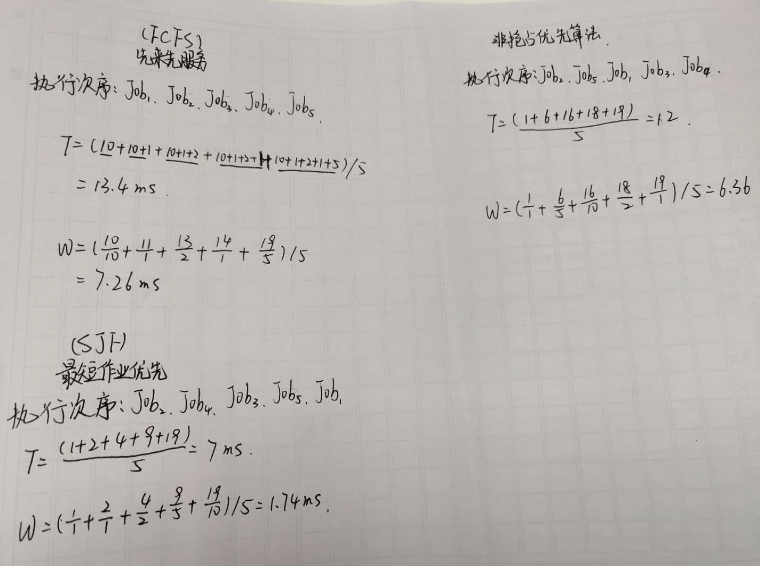 (FCFS)
先来先服务
执行次序：Job₁、Job₂、Job₃、Job₄、Job₅、
T=(10+10+1+10+1+2+10+1+2+1+10+1+2+1+5)/5
=13.4ms.
W=(10/10+11/1+13/2+14/1+19/5)/5
=7.26ms
(SJF)
最短作业优先
执行次序：Job₂、Job₄、Job₃、Job₅、Job₁
T=(1+2+4+9+19)/5=7ms.
W=(1/1+2/1+4/2+9/5+19/10)/5=1.74ms.
非抢占优先算法.
执行次序：Job₂、Job₅、Job₁、Job₃、Job₄.
T=(1+6+16+18+19)/5=12.
W=(1/1+6/5+16/10+18/2+19/1)/5=6.36